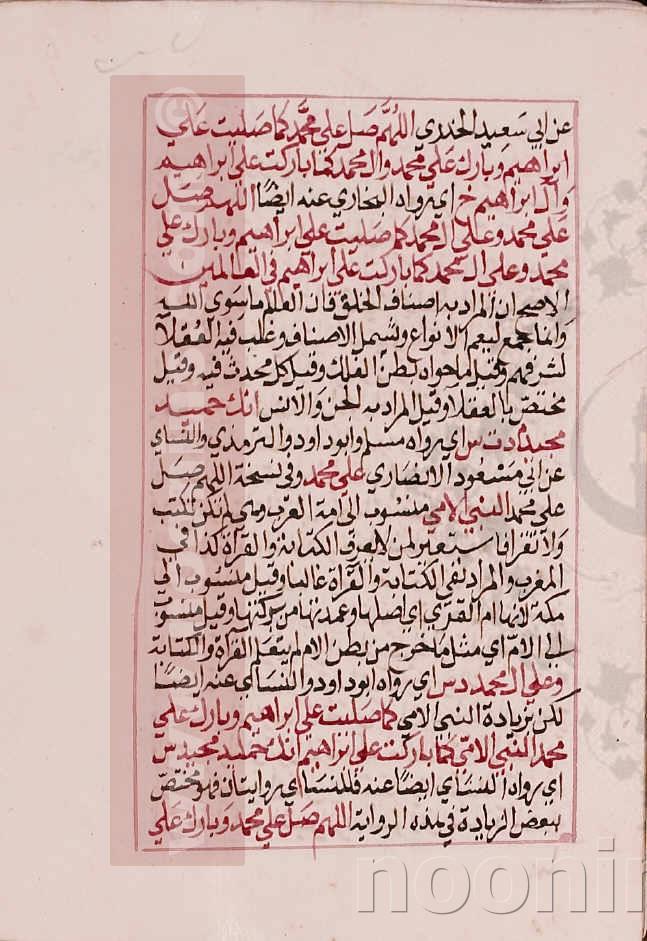 عن ابي سعيد الخدري اللهم صل على محمد كما صليت على
ابراهيم وبارك على محمد وال محمد كما باركت على ابراهيم
وآل ابراهيم خ اي رواه البخاري عنه ايضا اللهم صل
على محمد وعلى ال محمد كما صليت على ابراهيم وبارك على
محمد وعلى ال محمد كما باركت على ابراهيم في العالمين
الاصح ان المراد به اصناف الخلق فان العالم ما سوى الله
وانما جمع ليعم الانواع ويشمل الاصناف وغلب فيه العقلا
لشرفهم وقيل ما حواه بطن الفلك وقيل كل محدث فيه وقيل
مختص بالعقلا وقيل المراد به الجن والانس انك حميد
مجيد م د ت س اي رواه مسلم وابو داود والترمذي والنساي
عن ابي مسعود الانصاري على محمد وفي نسخة اللهم صل
على محمد النبي الامي منسوب الى امة العرب وهي لم تكن تكتب
ولا تقرا فاستعير لمن لا يعرف الكتابة والقرآة كذا في
المغرب والمراد نفي الكتابة والقرآة غالبا وقيل منسوب الى
مكة لانها ام القرى اي اصلها وقيل منسوب
الى الام اي مثل ما خرج من بطن الام لم يتعلم القرآة والكتابة
وعلى ال محمد د س اي رواه ابو داود والنساي عنه ايضا
لكن بزيادة النبي الامي كما صليت على ابراهيم وبارك على
محمد النبي الامي كما باركت على ابراهيم انك حميد مجيد س
اي رواه النساي ايضا عنه فللنساي روايتان فهو مختص
ببعض الزيادة في هذه الرواية اللهم صل على محمد وبارك على
noonir